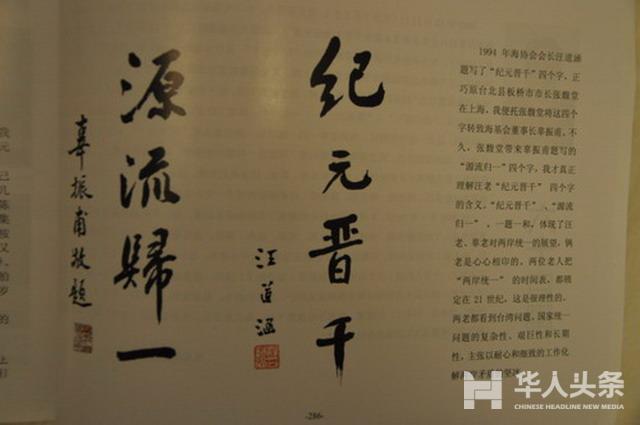 纪元晋千
汪道涵
源流歸一
辜振甫敬题
1994 年海协会会长汪道涵
题写了“纪元晋千”四个字，正
巧原台北县板桥市市长张馥堂
在上海，我便托张馥堂将这四个
字转致海基会董事长辜振甫，不
久，张馥堂带来辜振甫题写的
“源流归一”四个字，我才真正
理解汪老“纪元晋千”四个字
的含义。“纪元晋千”、“源流
归一”，一题一和，体现了汪
老、辜老对两岸统一的展望，俩
老是心心相印的。两位老人把
“两岸统一”的时间表，都锁
定在 21 世纪，这是很理性的。
两老都看到台湾问题、国家统一
问题的复杂性、艰巨性和长期
性，主张以耐心和细致的工作化
-286-
华人头条
CHINESE HEADLINE NEW MEDIA